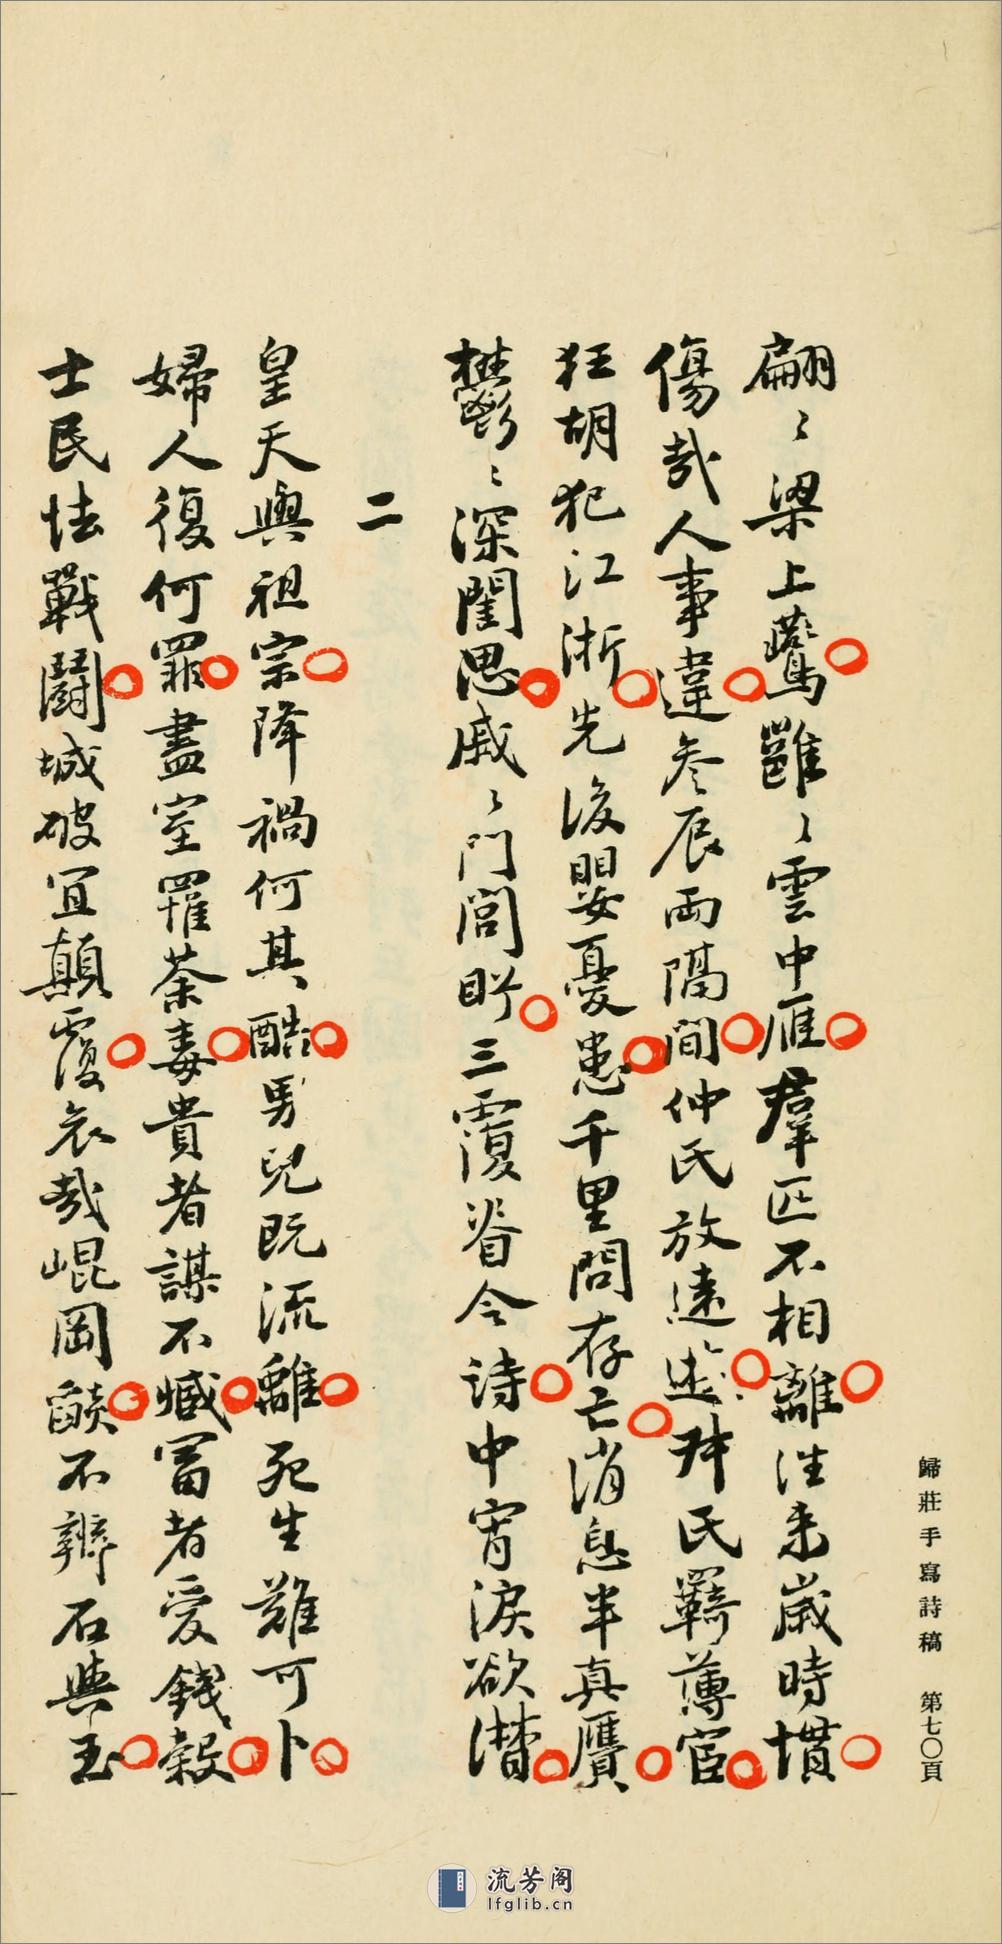 翩〻梁上鷰雝〻雲中雁羣匹不相離往来歲時慣
傷哉人事違参辰兩隔間仲氏放遠逰叔氏羇薄宦
狂胡犯江浙先後嬰憂患千里問存亡消息半真贋
鬱〻深閨思戚〻門閭盻三覆脊令诗中宵淚欲潸
二
皇天與祖宗降禍何其酷男兒既流離死生難可卜
婦人復何罪盡室罹荼毒貴者謀不臧富者爱錢穀
士民怯戰鬪城破宜顛覆哀哉崐岡燄不辨石與玉
歸莊手寫詩稿 第七〇頁
流芳阁
lfglib.cn